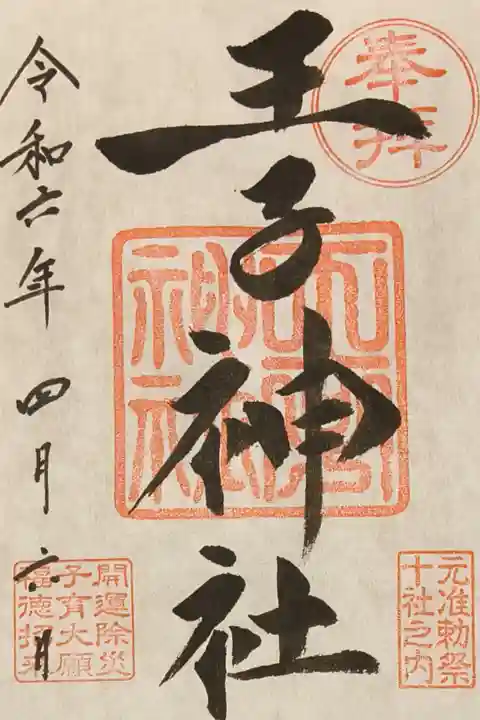 奉拝
王子神社
元准勅祭
十社之内
開運除災
子育大願
福徳招来
令和六年 四月六日